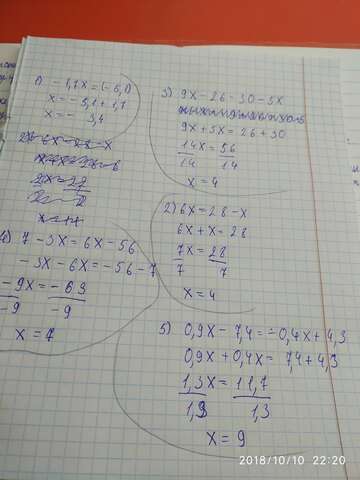 1) -1,7x = (-5,1)
x = -5,1 + 1,7
x = - 3,4
2x = 27
x = 11
4) 7 - 3x = 6x - 56
-3x - 6x = -56 - 7
-9x = -63
-9 -9
x = 7
3) 9x - 26 = 30 - 5x
9x + 5x = 26 + 30
14x = 56
14 14
x = 4
2) 6x = 28 - x
6x + x = 28
7x = 28
7 7
x = 4
5) 0,9x - 7,4 = -0,4x + 4,3
0,9x + 0,4x = 7,4 + 4,3
1,3x = 11,7
1,3 1,3
x = 9
2018/10/10 22:20